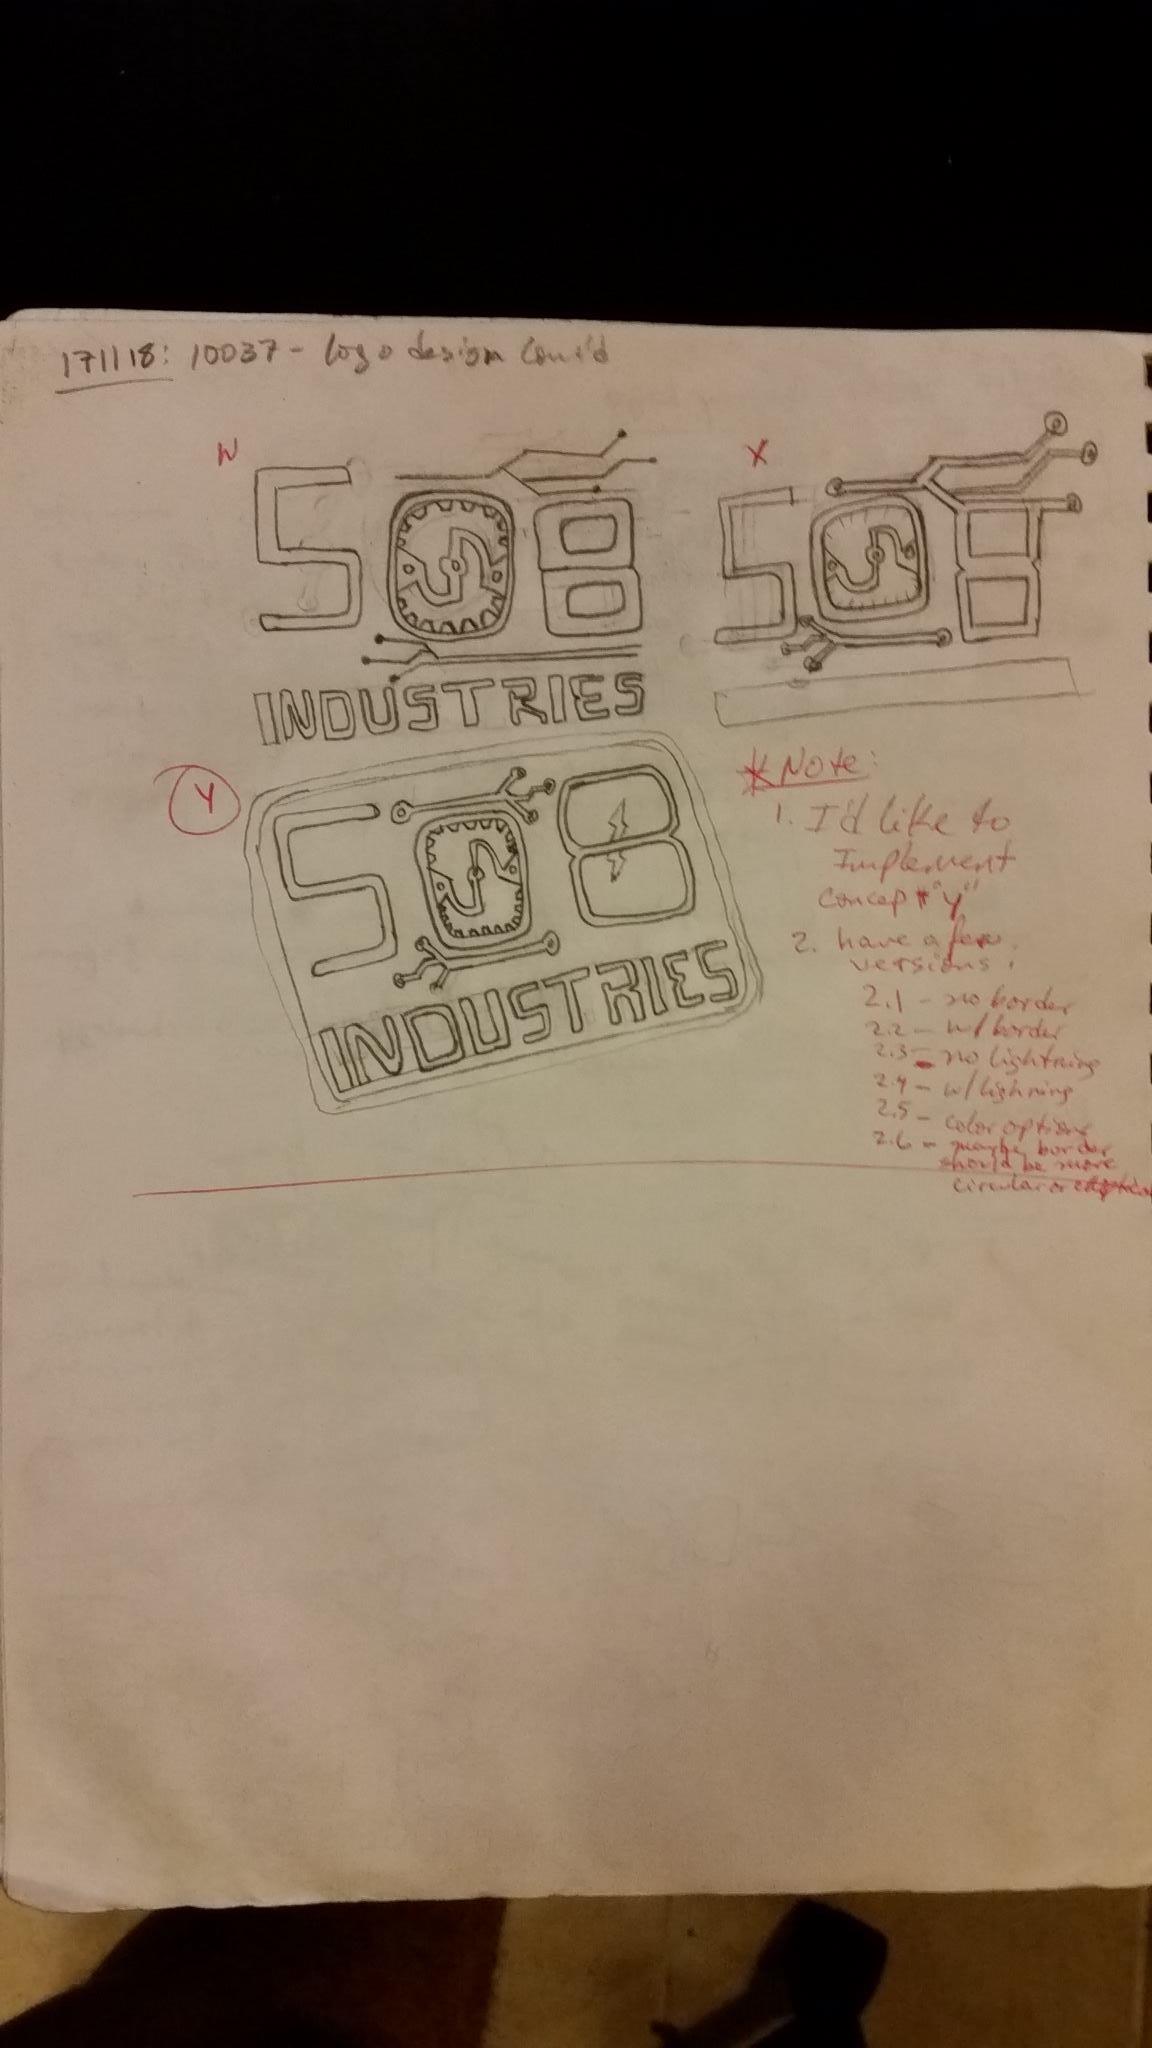 171118: 10037 - Logo design Con't'd
W
X
508
508
INDUSTRIES
Y
508
INDUSTRIES
* Note:
1. I'd like to
Implement
concept "Y"
2. have a few
versions.
2.1 - no border
2.2 - w/ border
2.3 - no lightning
2.4 - w/ lighning
2.5 - color options
2.6 - maybe border
should be more
circular or eliptical